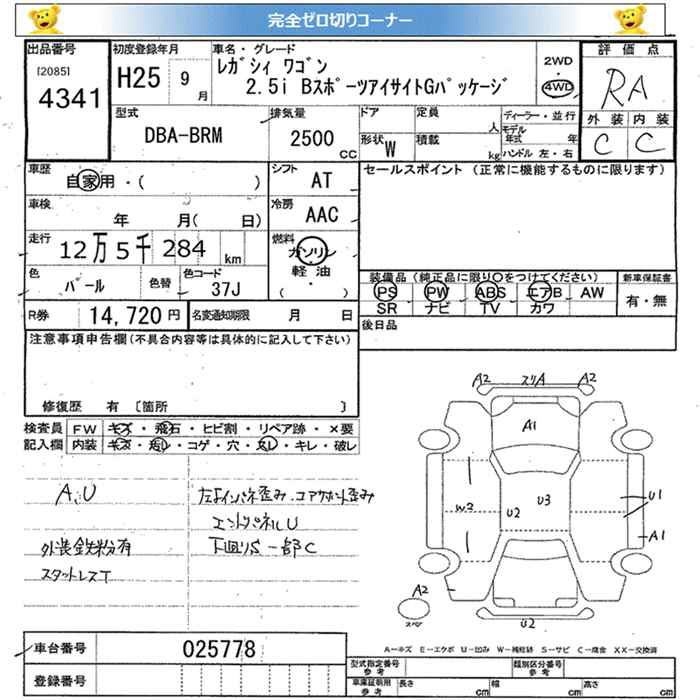 完全ゼロ切りコーナー
出品番号
[2085]
4341
初度登録年月
H25 9 月
車名・グレード
レガシィ ワゴン
2.5i BスポーツアイサイトGパッケージ
2WD
4WD
評価点
RA
外装 内装
C C
型式
DBA-BRM
排気量
2500 CC
ドア
定員
人
形状 W
積載
kg
ディーラー・並行
モデル
年式 年
ハンドル 左・右
車歴
自家用・( )
シフト
AT
セールスポイント (正常に機能するものに限ります)
車検
年 月( 日)
冷房
AAC
走行
12万5千284 km
燃料
ガソリン
軽・油
( )
色
パール
色替
色コード
37J
装備品(純正品に限り○をつけてください)
PS PW ABS エアB AW
SR ナビ TV カワ
新車保証書
有・無
R券 14,720 円
名変通知期限 月 日
後日品
注意事項申告欄(不具合内容等は具体的に記入して下さい)
修復歴 有 〔箇所 〕
検査員 FW キズ・飛石・ヒビ割・リペア跡・×要
記入欄 内装 キズ・汚レ・コゲ・穴・スレ・キレ・破レ
A,U
外装鉄粉有
スタットレスT
左よインパネ歪み.コアサポート歪み
エンドパネルU
下回りS 一部C
A2 スリA A2
A1
W2
U2
U3
U1
A1
A2
スペア
U2
A―キズ E―エクボ U―凹み W―補修跡 S―サビ C―腐食 XX―交換済
車台番号
025778
登録番号
型式指定番号
参考
類別区分番号
参考
車庫証明用
参考
長さ cm
幅 cm
高さ cm